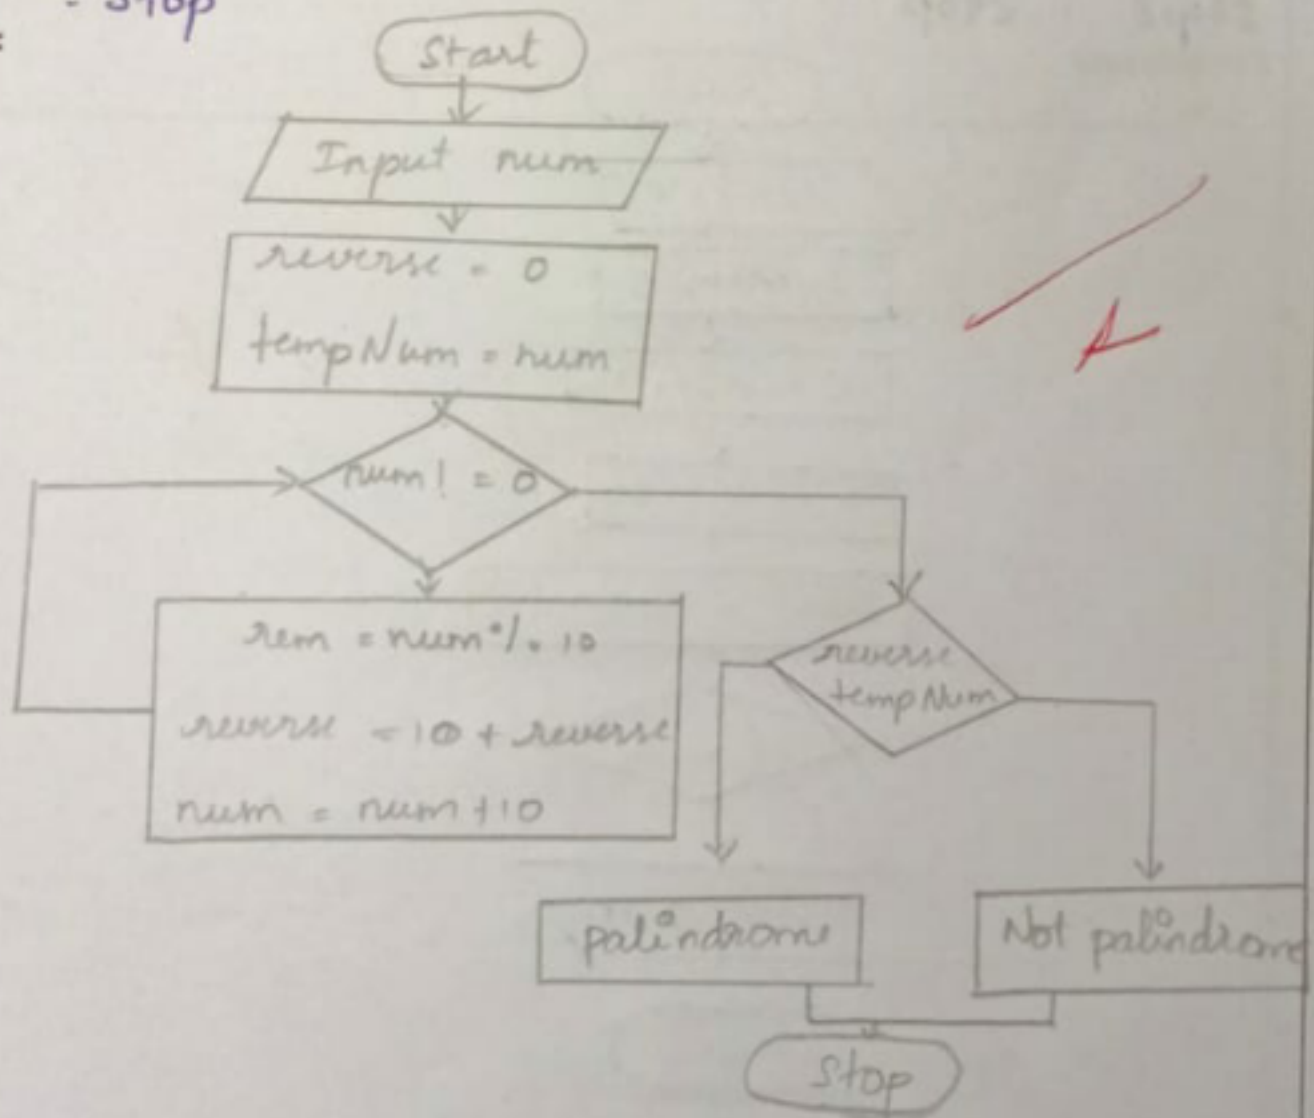 : Stop
Start
Input num
reverse = 0
tempNum = num
num! = 0
rem = num % 10
reverse = 10 + reverse
num = num + 10
reverse
tempNum
palindrome
Not palindrome
Stop